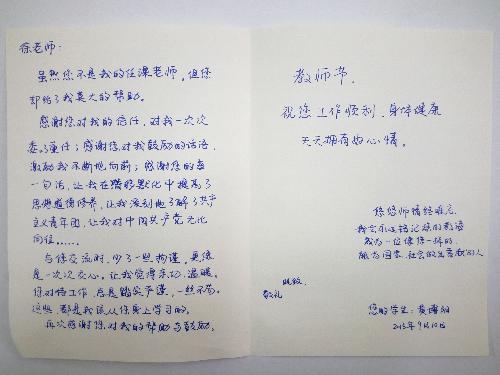 徐老师：
虽然您不是我的任课老师，但您
却给了我莫大的帮助。
感谢您对我的信任，对我一次次
委以重任；感谢您对我鼓励的话语，
激励我不断地向前；感谢您的每
一句话，让我在潜移默化中提高了
思想道德修养，让我深刻地了解了共产
主义青年团，让我对中国共产党无比
向往……
与你交流时，少了一些拘谨，更像
是一次次交心，让我觉得亲切、温暖。
你对待工作，总是踏实严谨，一丝不苟。
这些都是我该从你身上学习的。
再次感谢你对我的帮助与鼓励。
教师节，
祝您工作顺利，身体健康
天天拥有好心情。
悠悠师情终难忘。
我会永远铭记您的教诲
成为一位像您一样的，
能为国家、社会做出贡献的人
此致
敬礼
您的学生：
2015年9月10日